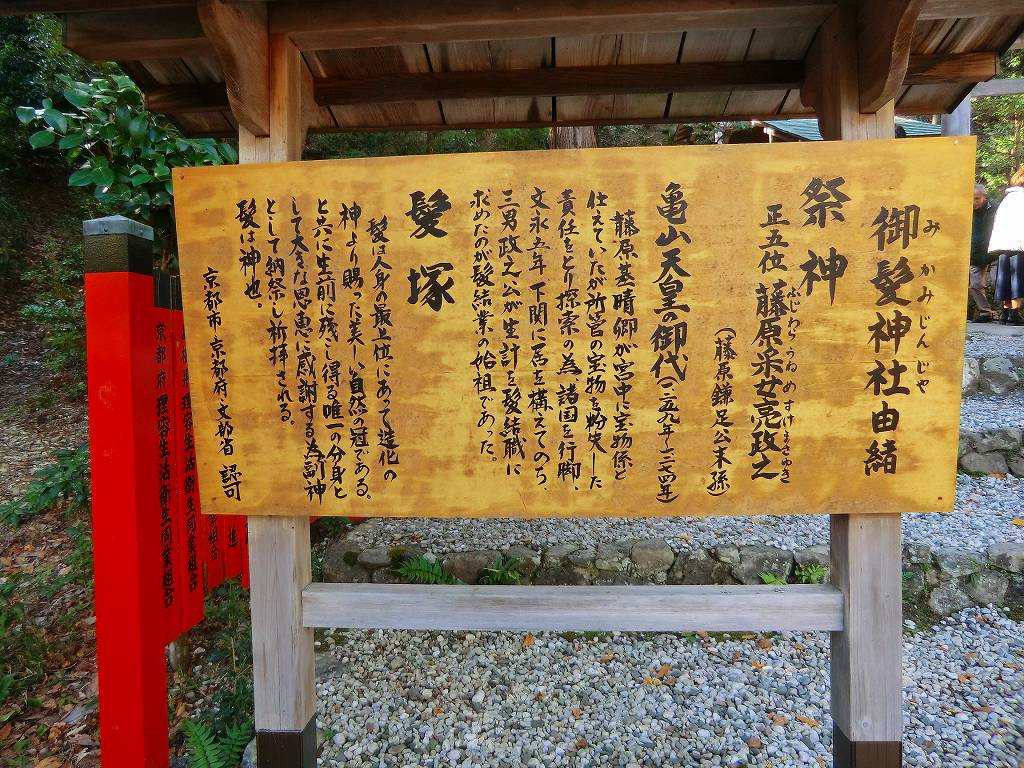 御髪神社由緒
みかみじんじゃ
祭神
正五位 藤原采女亮政之
ふじわらうねめすけまさゆき
(藤原鎌足公末孫)
亀山天皇の御代(一二五九年〜一二七四年)
藤原基晴卿が宮中に宝物係と
仕えていたが所管の宝物を紛失した
責任をとり探索の為諸国を行脚、
文永五年下関に居を構えてのち、
三男政之公が生計を髪結職に
求めたのが髪結業の始祖であった。
髪塚
髪は人身の最上位にあって造化の
神より賜った美しい自然の冠である。
と共に生前に残し得る唯一の分身と
して大きな恩恵に感謝する為副神
として納祭し祈拝される。
髪は神也。
京都市 京都府 文部省 認可
理容生活衛生同業組合
京都府理容生活衛生同業組合